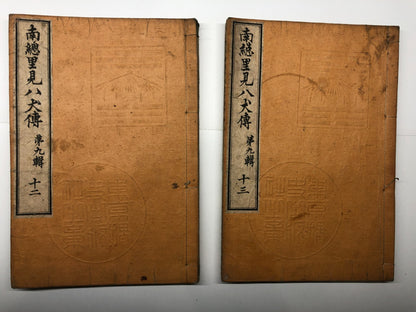 南總里見八犬傳 第九輯 十二
南總里見八犬傳 第九輯 十三